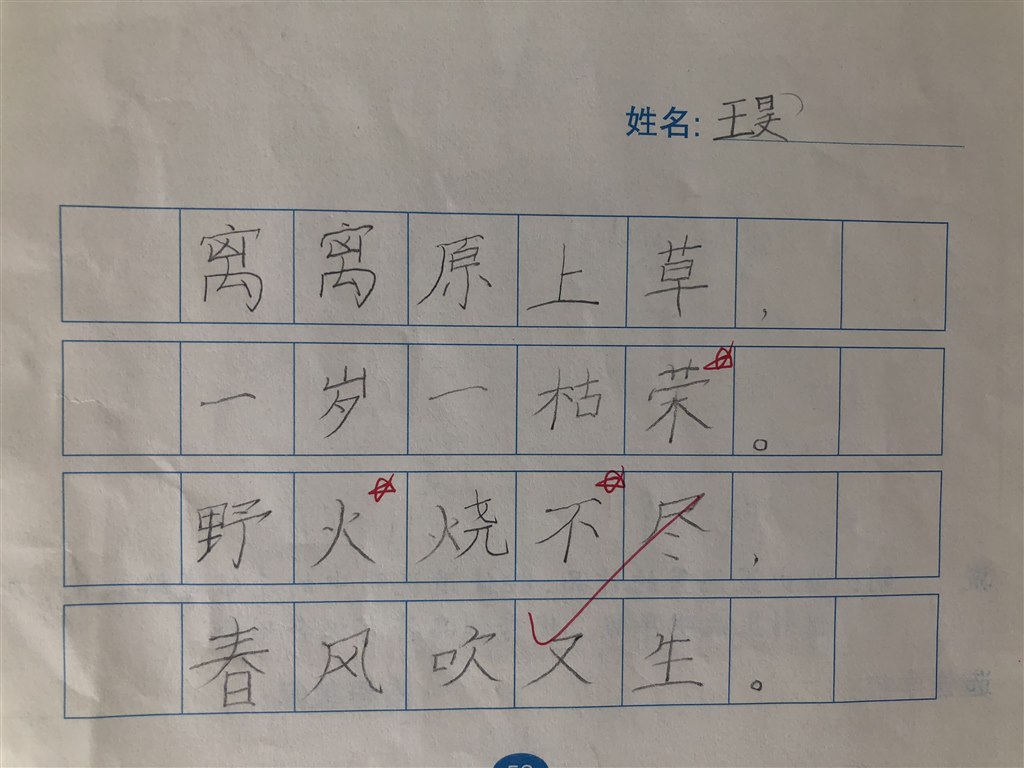 姓名: 王昊
离离原上草,
一岁一枯荣。
野火烧不尽,
春风吹又生。